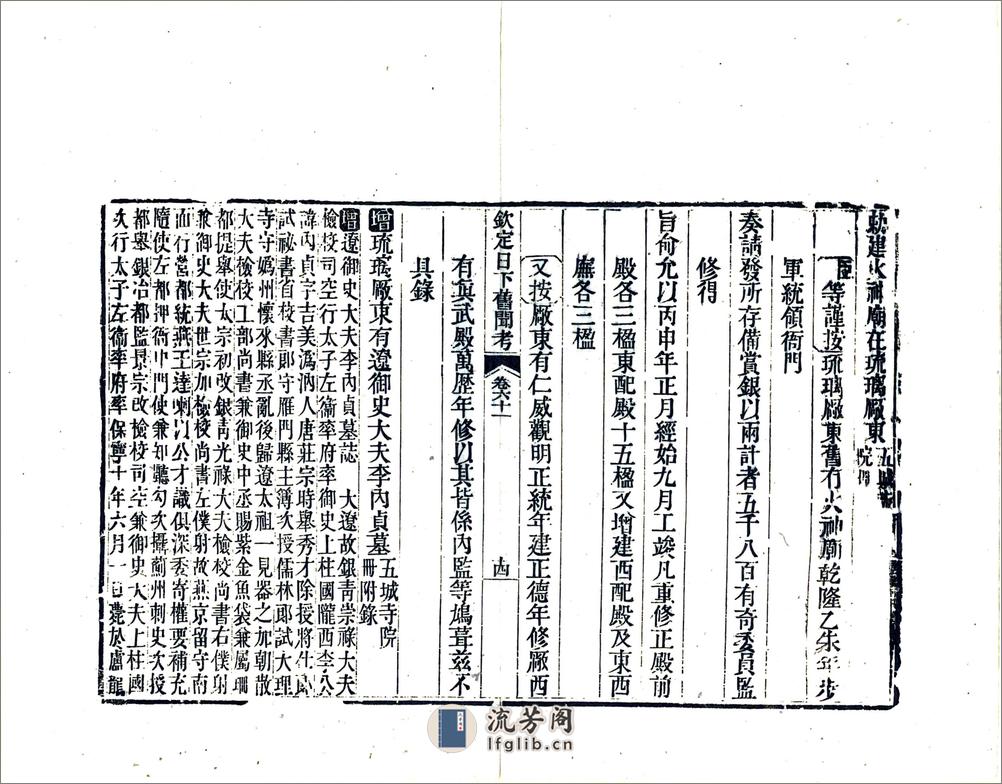 敕建火神廟在琉璃廠東 五城寺院冊
臣等謹按琉璃廠東舊有火神廟乾隆乙未年步
軍統領衙門
奏請發所存備賞銀以兩計者五千八百有奇委員監
修得
旨俞允以丙申年正月經始九月工竣凡重修正殿前
殿各三楹東配殿十五楹又增建西配殿及東西
廡各三楹
欽定日下舊聞考 卷六十一 十四
又按廠東有仁威觀明正統年建正德年修廠西
有真武殿萬歷年修以其皆係內監等鳩葺茲不
具錄
增琉璃廠東有遼御史大夫李內貞墓 五城寺院冊附錄
增遼御史大夫李內貞墓誌 大遼故銀青崇祿大夫
檢校司空行太子左衞率府率御史上柱國隴西李公
諱內貞字吉美溈汭人唐莊宗時舉秀才除授將仕郎
試祕書省校書郎守雁門縣主簿次授儒林郎試大理
寺守媯州懷來縣丞亂後歸遼太祖一見器之加朝散
大夫檢校工部尚書兼御史中丞賜紫金魚袋兼屬珊
都提舉使太宗初改銀青光祿大夫檢校尚書右僕射
兼御史大夫世宗加檢校尚書左僕射故燕京留守南
面行營都統燕王達喇以公才識俱深委寄權要補充
隨使左都押衙中門使兼知廳勾次攝薊州刺史次授
都舉銀冶都監景宗改檢校司空兼御史大夫上柱國
次行太子左衞率府率保寧十年六月一日薨於盧龍
流芳阁
lfglib.cn